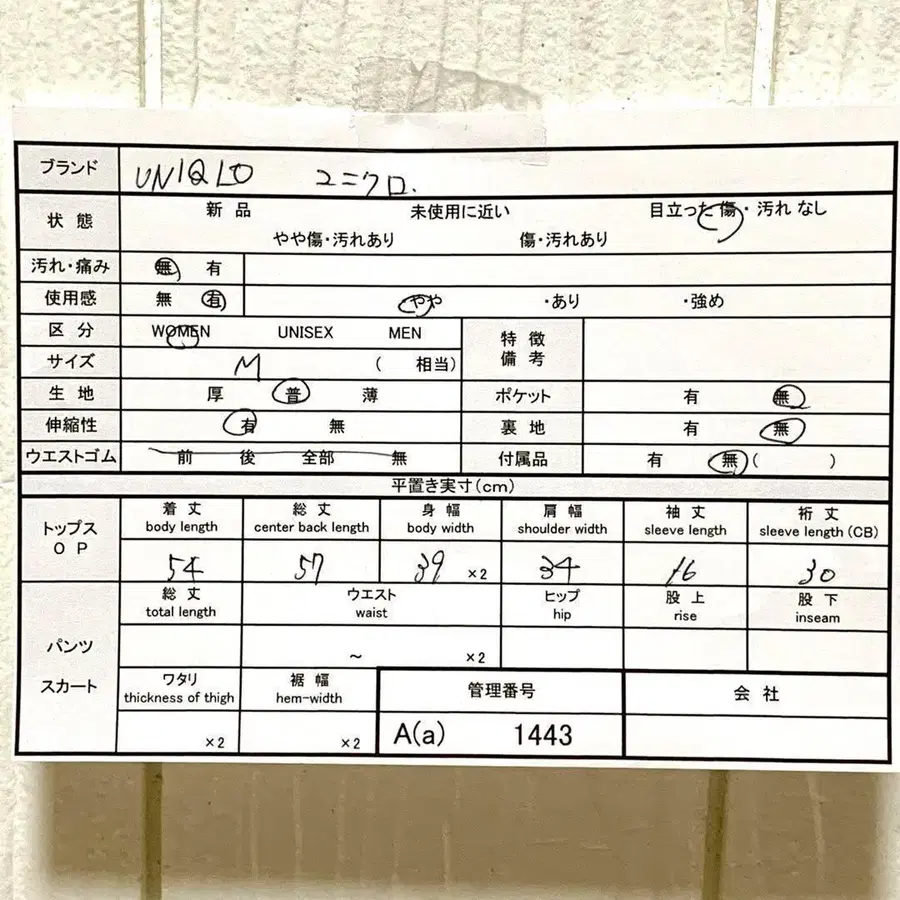 ブランド UNIQLO ユニクロ.
状態 新品 未使用に近い 目立った傷・汚れなし
やや傷・汚れあり 傷・汚れあり
汚れ・痛み 無 有
使用感 無 有 ・やや ・あり ・強め
区分 WOMEN UNISEX MEN 特徴備考
サイズ M ( 相当)
生地 厚 普 薄 ポケット 有 無
伸縮性 有 無 裏地 有 無
ウエストゴム 前 後 全部 無 付属品 有 無 ( )
平置き実寸(cm)
トップス OP 着丈 総丈 身幅 肩幅 袖丈 裄丈
body length center back length body width shoulder width sleeve length sleeve length (CB)
54 57 39 ×2 34 16 30
パンツ スカート 総丈 ウエスト ヒップ 股上 股下
total length waist hip rise inseam
~ ×2
ワタリ 裾幅 管理番号 会社
thickness of thigh hem-width
×2 ×2 A(a) 1443